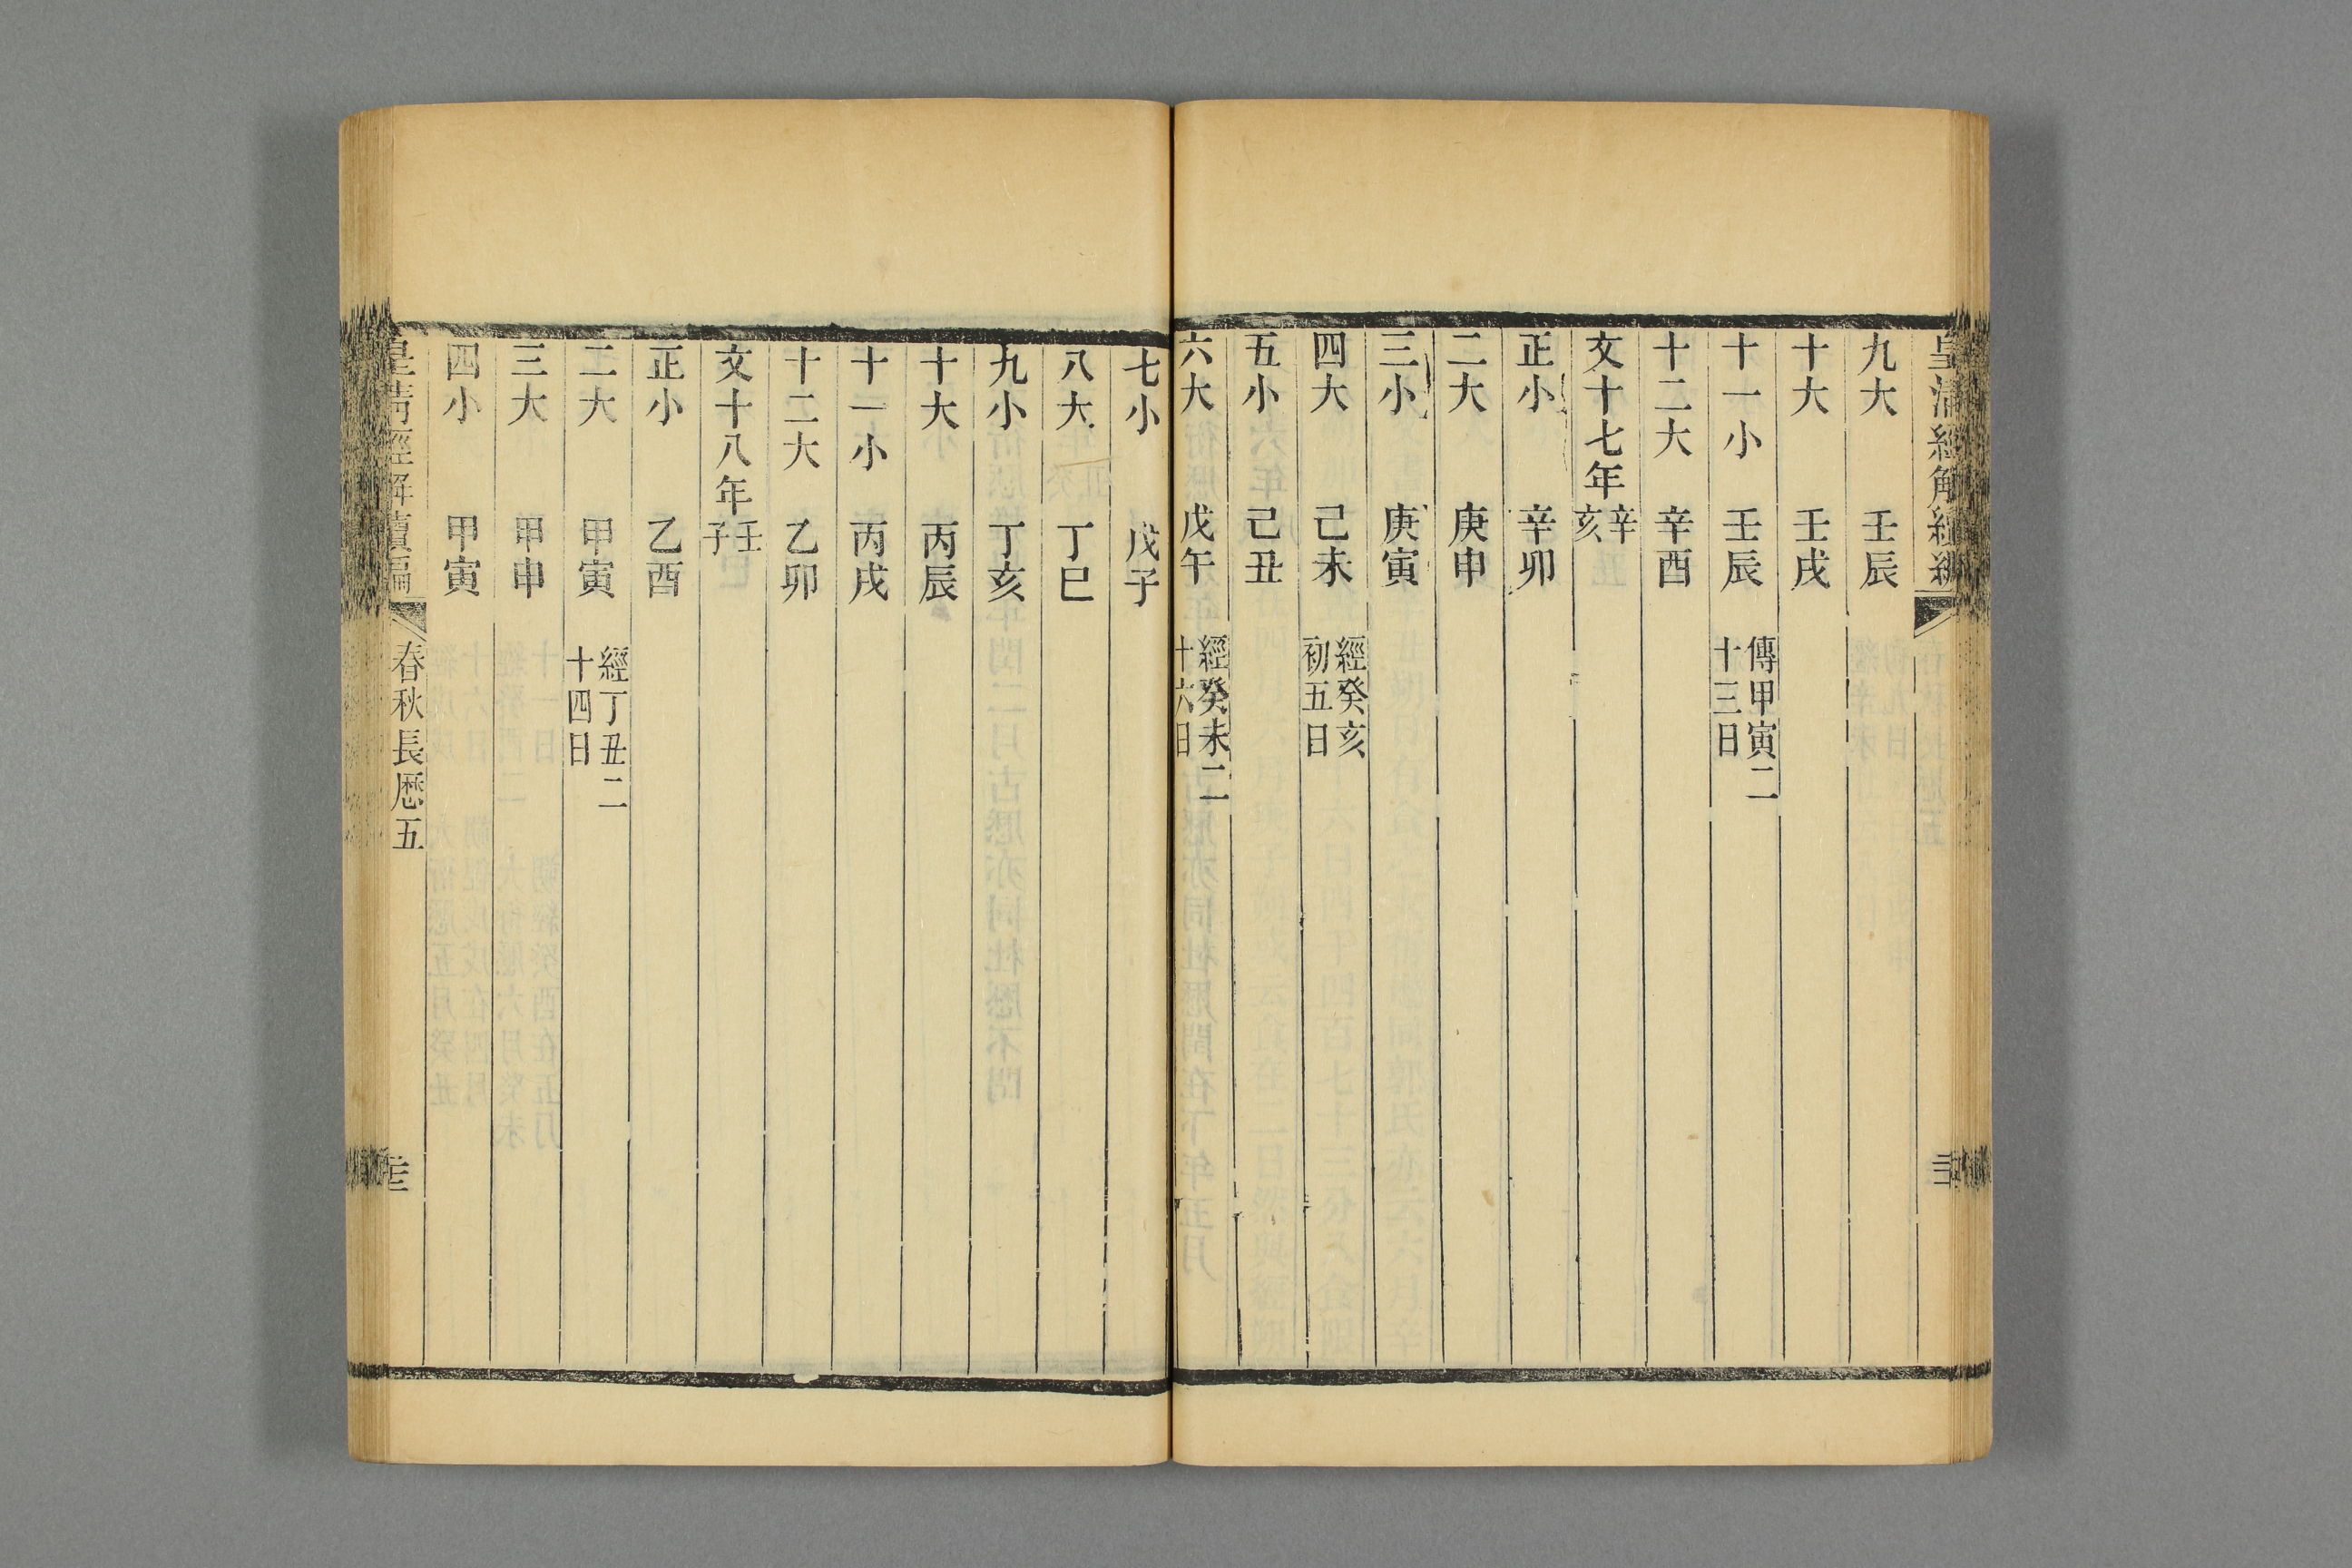 皇清經解續編
九大 壬辰
十大 壬戌
十一小 壬辰 傳甲寅二十三日
十二大 辛酉
文十七年 辛亥
正小 辛卯
二大 庚申
三小 庚寅
四大 己未 經癸亥初五日
五小 己丑
六大 戊午 經癸未二十六日
七小 戊子
八大 丁巳
九小 丁亥
十大 丙辰
十一小 丙戌
十二大 乙卯
文十八年 壬子
正小 乙酉
二大 甲寅 經丁丑二十四日
三大 甲申
四小 甲寅
皇清經解續編 春秋長厯五